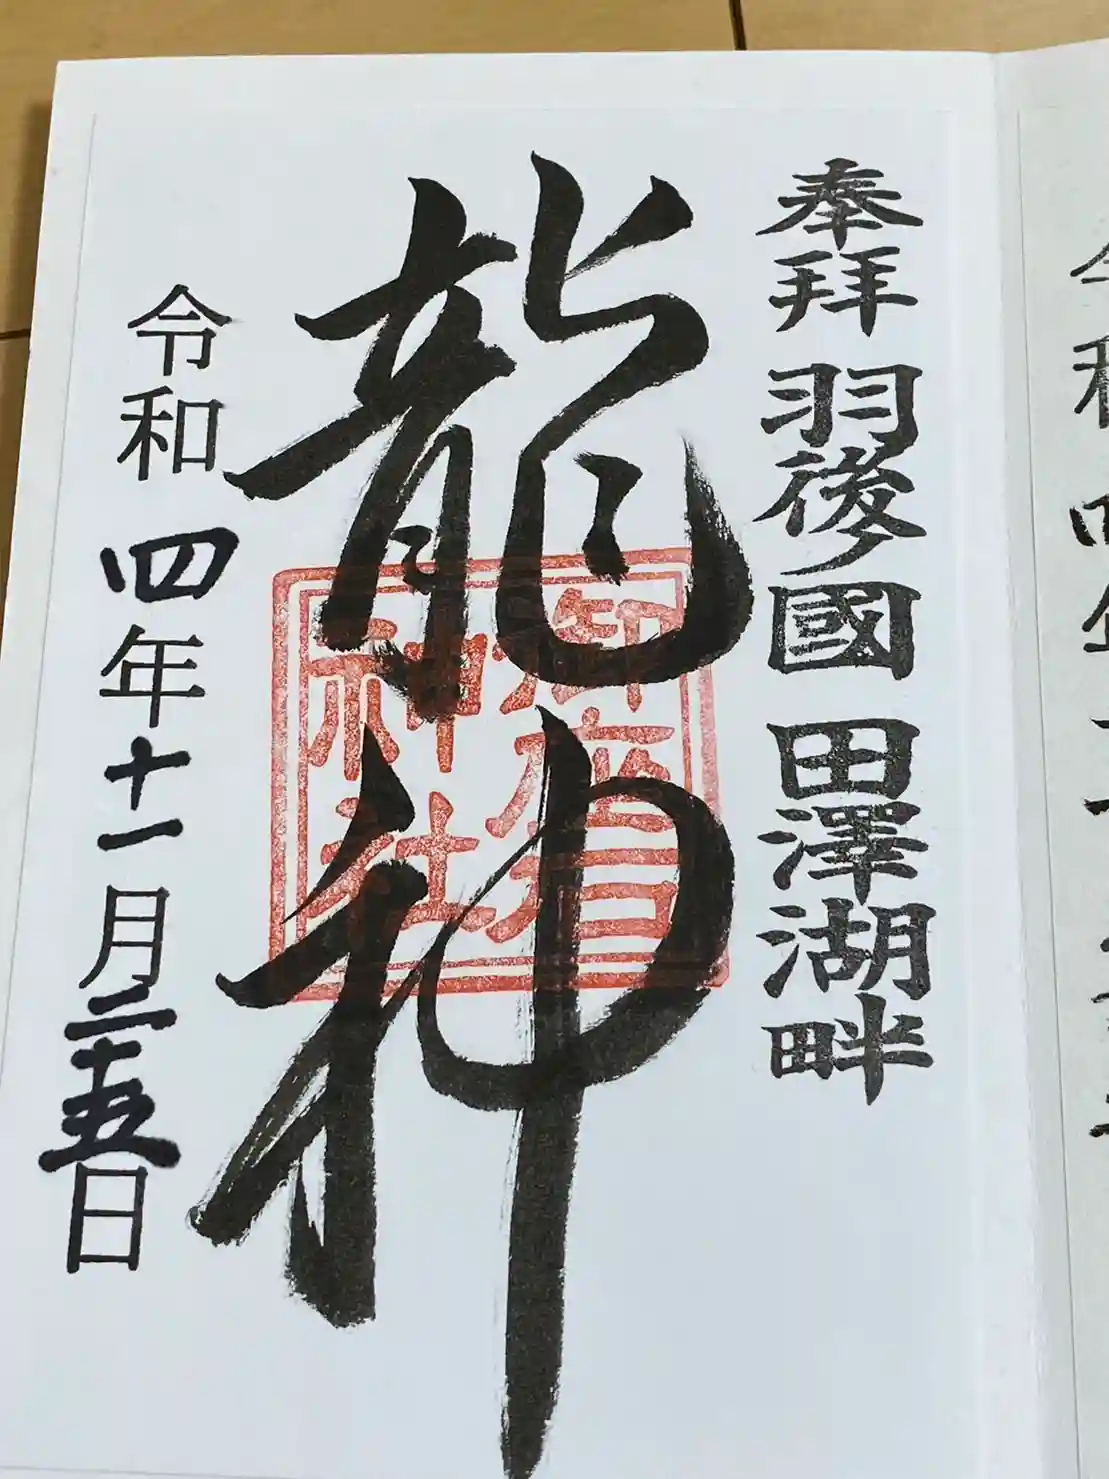 奉拜 羽後國 田澤湖畔
龍神
御座石
神社
令和四年十一月二十五日